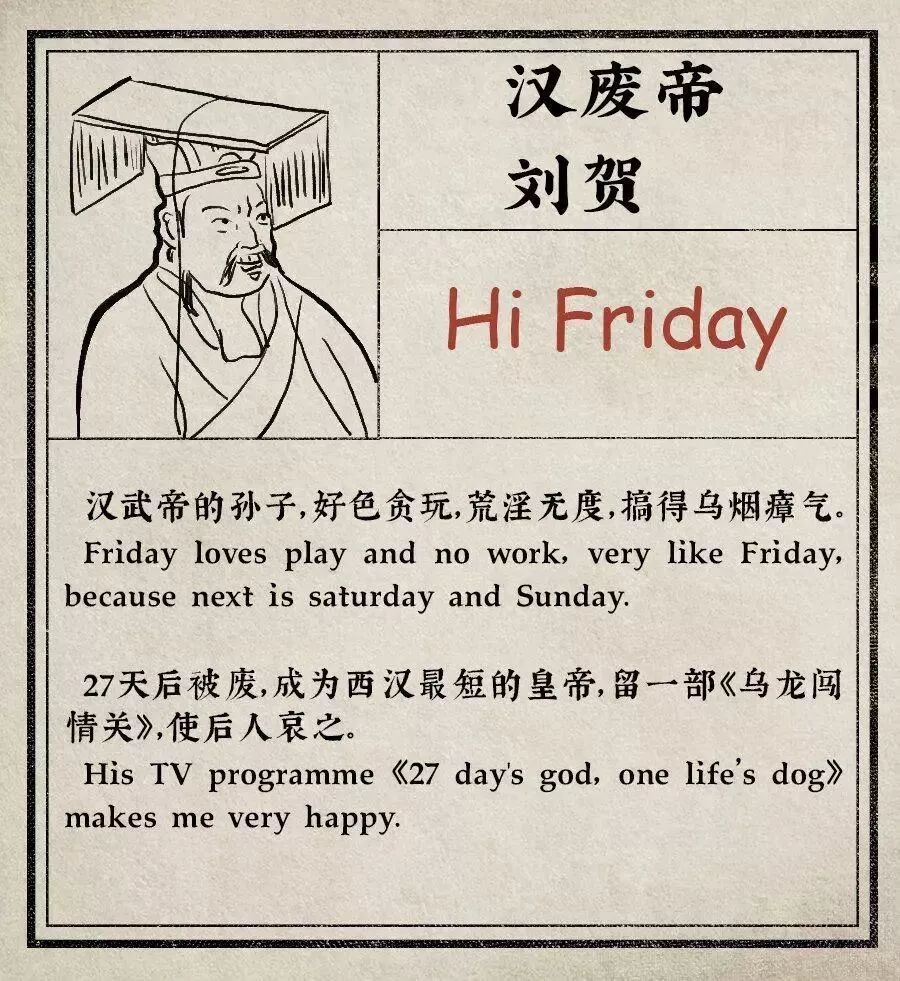 汉废帝
刘贺
Hi Friday
汉武帝的孙子,好色贪玩,荒淫无度,搞得乌烟瘴气。
Friday loves play and no work, very like Friday,
because next is saturday and Sunday.
27天后被废,成为西汉最短的皇帝,留一部《乌龙闯
情关》,使后人哀之。
His TV programme 《27 day's god, one life's dog》
makes me very happy.